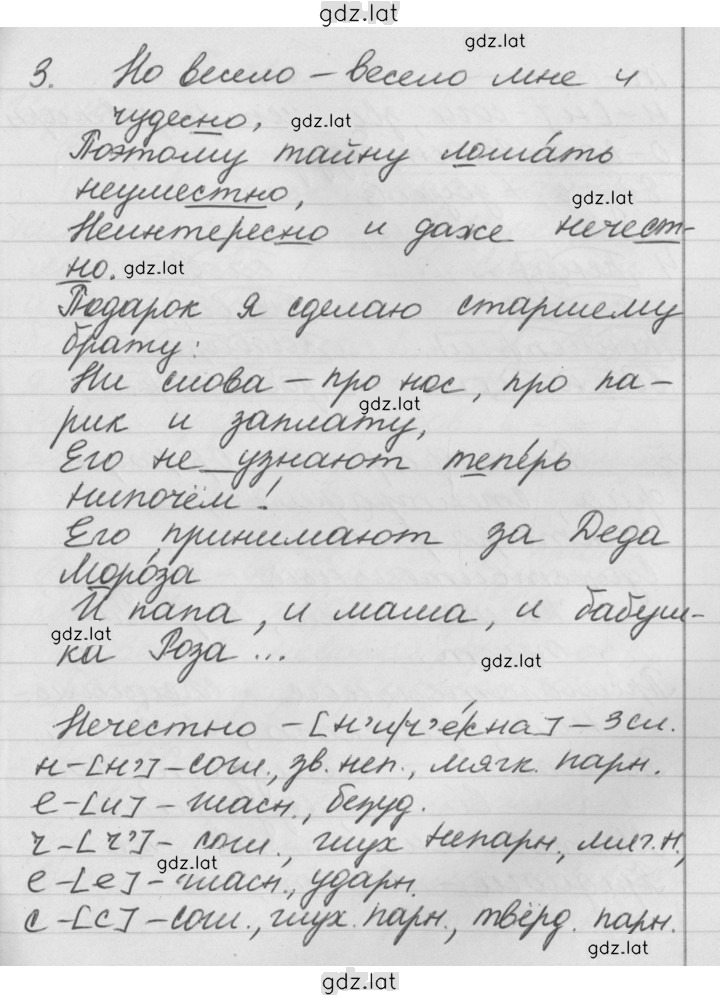 gdz.lat
gdz.lat
3. Но весело – весело мне и
чудесно,
gdz.lat
Поэтому тайну ломать
неуместно,
gdz.lat
Неинтересно и даже нечест-
но.
gdz.lat
Подарок я сделаю старшему
брату:
Ни слова – про нос, про па-
gdz.lat
рик и заплату,
Его не узнают тепе́рь
нипочём!
Его принимают за Деда
Моро́за
И папа, и мама, и бабуш-
gdz.lat
ка Роза ...
gdz.lat
Нечестно – [н'ич'е́сна] – 3 сл.
н – [н'] – согл., зв. неп., мягк. парн.
е – [и] – гласн., безуд.
ч – [ч'] – согл., глух непарн., мягч.н,
gdz.lat
е – [е] – гласн., ударн.
с – [с] – согл., глух. парн., твёрд. парн.
gdz.lat
gdz.lat